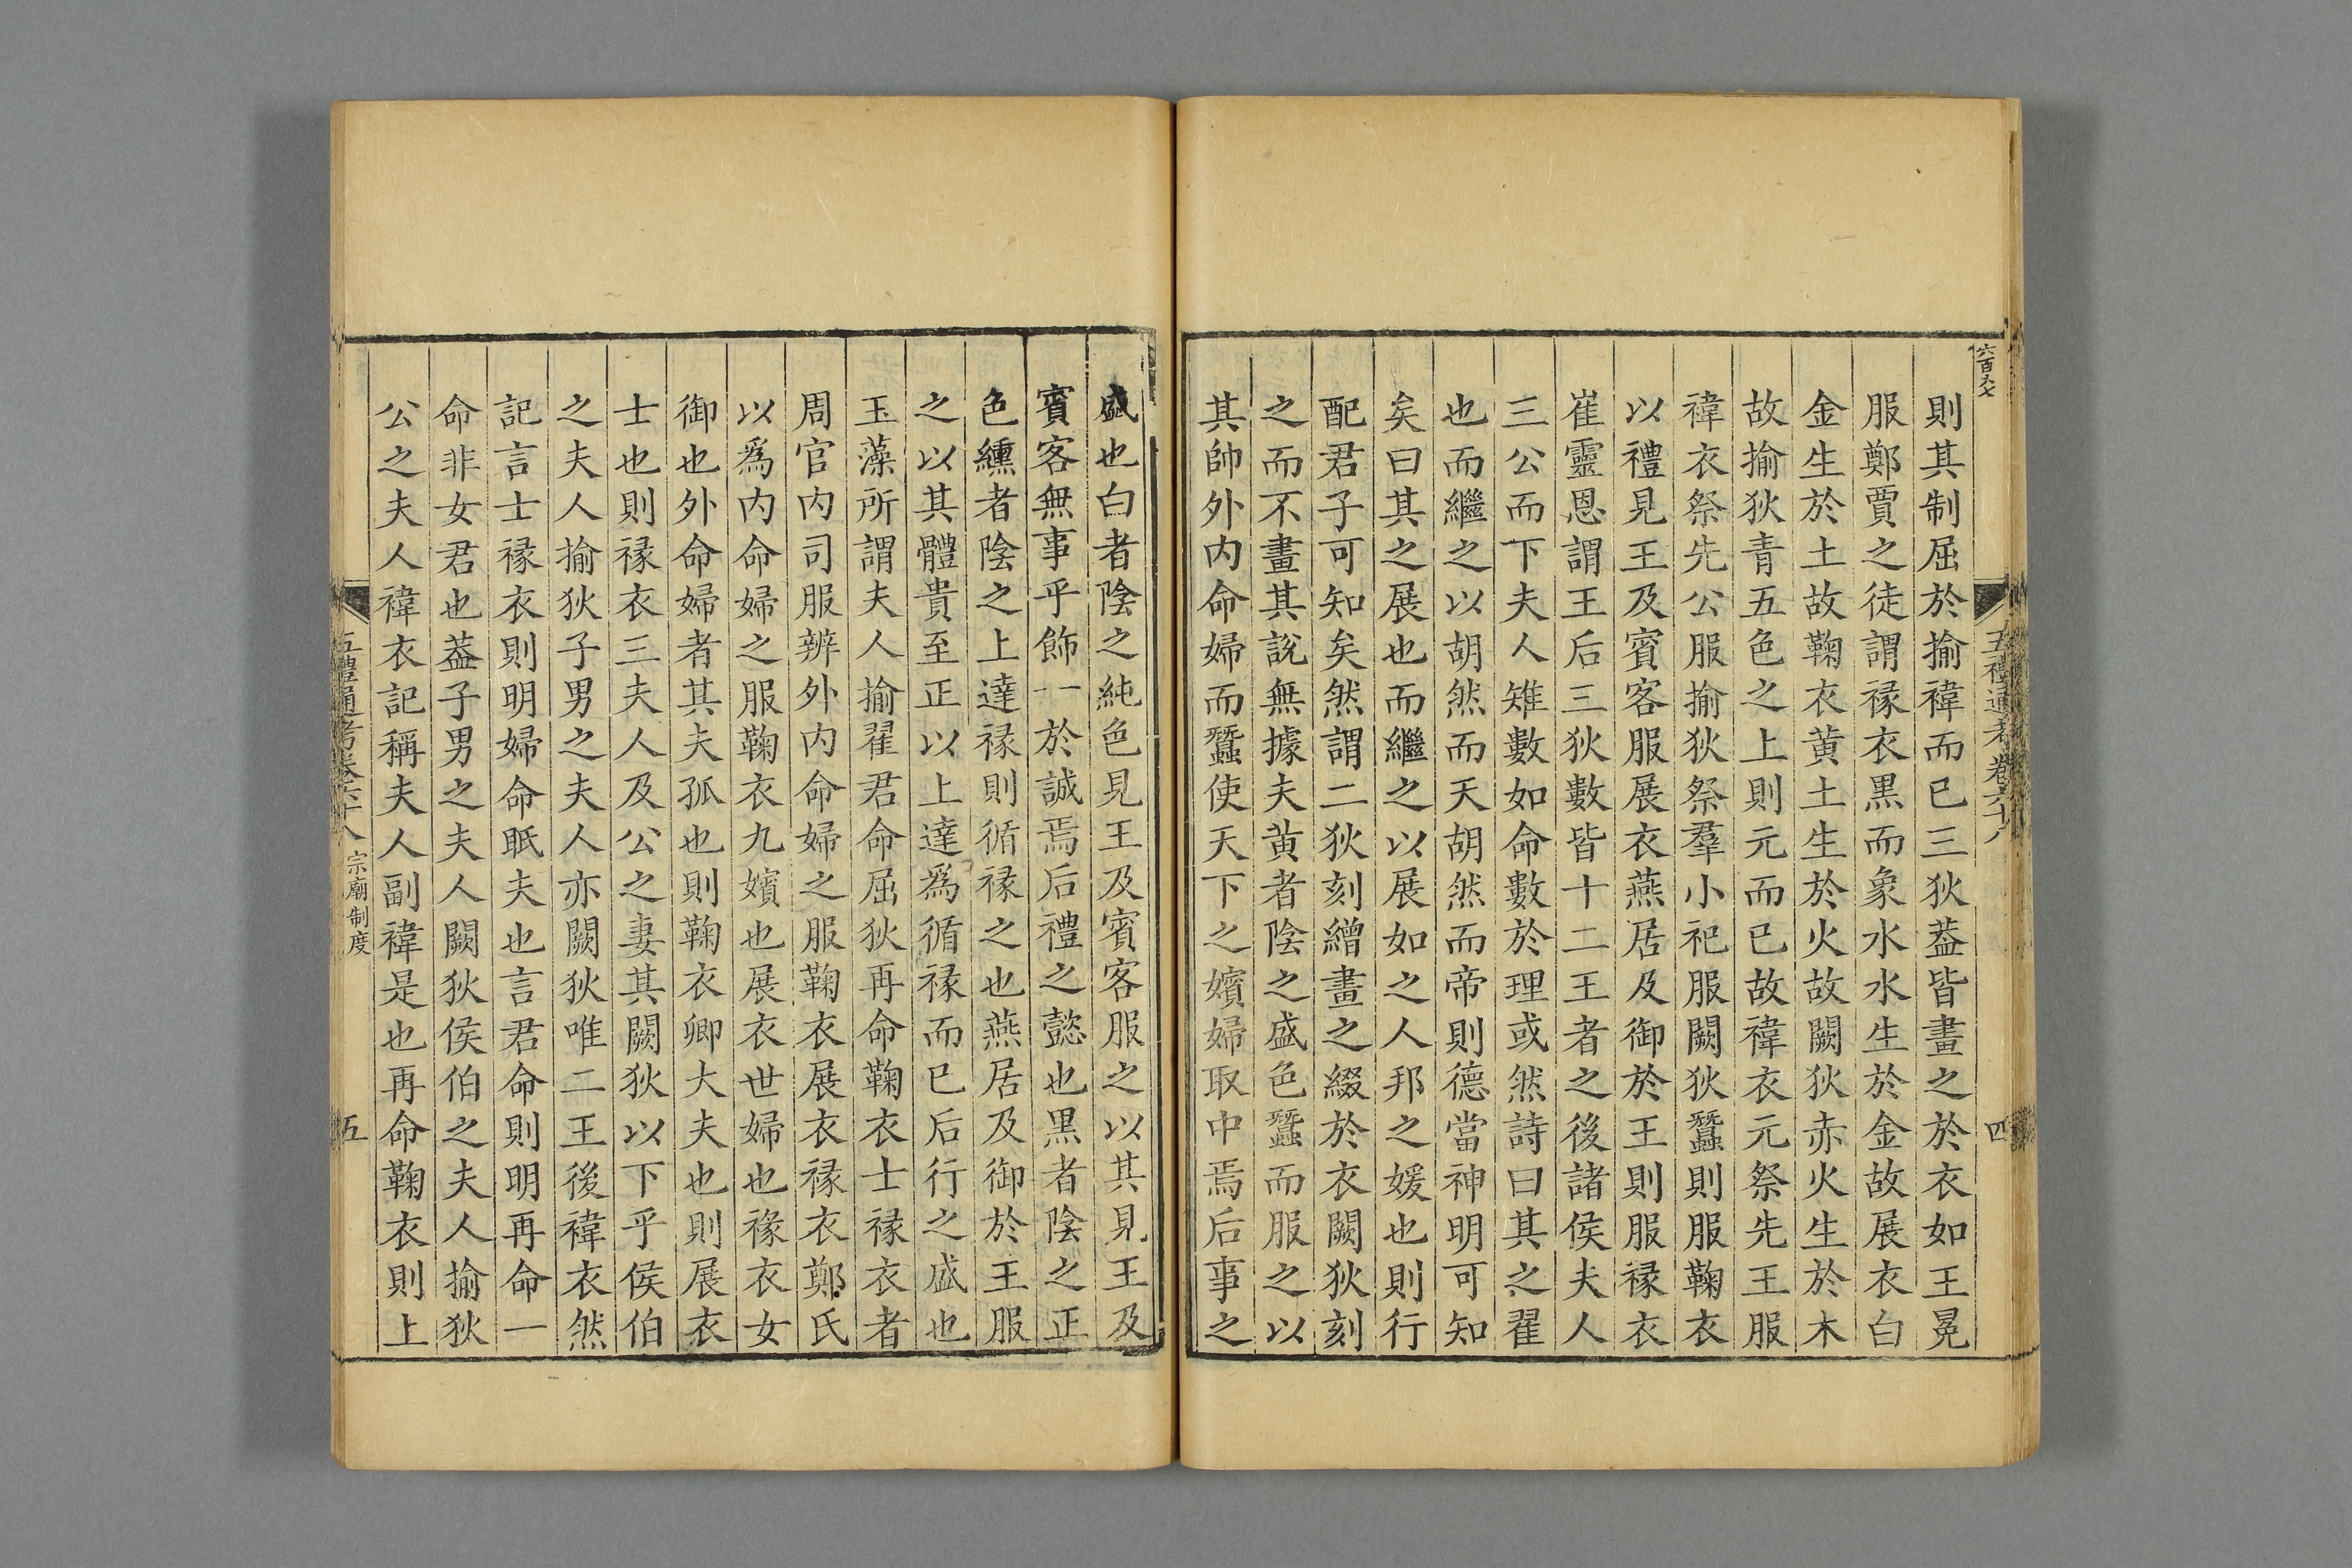 五禮通考卷六十八
四
則其制屈於揄褘而已三狄葢皆畫之於衣如王冕
服鄭賈之徒謂褖衣黒而象水水生於金故展衣白
金生於土故鞠衣黄土生於火故闕狄赤火生於木
故揄狄青五色之上則元而已故褘衣元祭先王服
褘衣祭先公服揄狄祭羣小祀服闕狄蠶則服鞠衣
以禮見王及賓客服展衣燕居及御於王則服褖衣
崔靈恩謂王后三狄數皆十二王者之後諸侯夫人
三公而下夫人雉數如命數於理或然詩曰其之翟
也而繼之以胡然而天胡然而帝則德當神明可知
矣曰其之展也而繼之以展如之人邦之媛也則行
配君子可知矣然謂二狄刻繒畫之綴於衣闕狄刻
之而不畫其說無據夫黄者陰之盛色蠶而服之以
其帥外内命婦而蠶使天下之嬪婦取中焉后事之
盛也白者陰之純色見王及賓客服之以其見王及
賓客無事乎飾一於誠焉后禮之懿也黒者陰之正
色纁者陰之上達褖則循緣之也燕居及御於王服
之以其體貴至正以上達爲循褖而已后行之盛也
玉藻所謂夫人揄翟君命屈狄再命鞠衣士褖衣者
周官内司服辨外内命婦之服鞠衣展衣褖衣鄭氏
以爲内命婦之服鞠衣九嬪也展衣世婦也褖衣女
御也外命婦者其夫孤也則鞠衣卿大夫也則展衣
士也則褖衣三夫人及公之妻其闕狄以下乎侯伯
之夫人揄狄子男之夫人亦闕狄唯二王後褘衣然
記言士褖衣則明婦命眡夫也言君命則明再命一
命非女君也葢子男之夫人闕狄侯伯之夫人揄狄
公之夫人褘衣記稱夫人副褘是也再命鞠衣則上
五禮通考卷六十八 宗廟制度
五